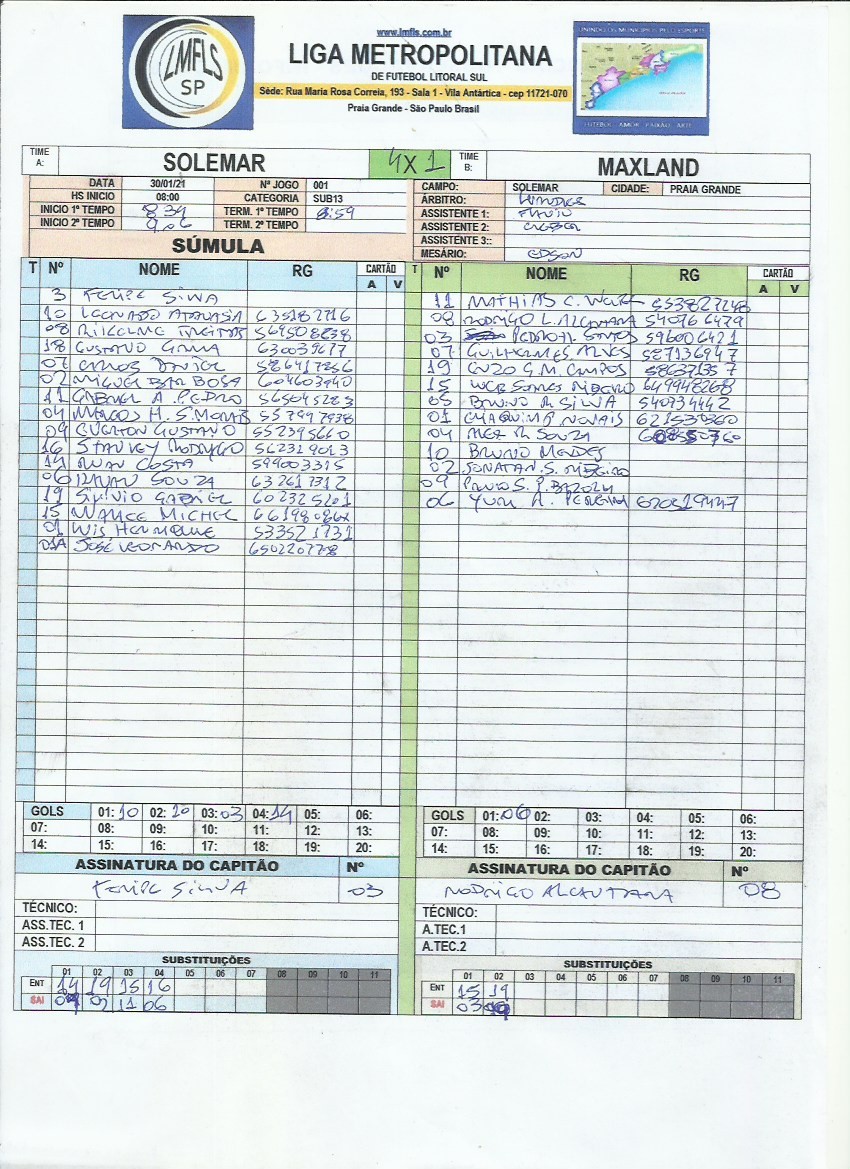 www.lmfls.com.br
LIGA METROPOLITANA
DE FUTEBOL LITORAL SUL
Séde: Rua Maria Rosa Correia, 193 - Sala 1 - Vila Antártica - cep 11721-070
Praia Grande - São Paulo Brasil
LMFLS
SP
UNINDO OS MUNICIPIOS PELO ESPORTE
FUTEBOL AMOR PAIXÃO ARTE
TIME A: SOLEMAR 4X1 TIME B: MAXLAND
DATA 30/01/21 Nº JOGO 001
HS INICIO 08:00 CATEGORIA SUB13
INICIO 1º TEMPO 8 34 TERM. 1º TEMPO 8:59
INICIO 2º TEMPO 9,06 TERM. 2º TEMPO
SÚMULA
CAMPO: SOLEMAR CIDADE: PRAIA GRANDE
ÁRBITRO:
ASSISTENTE 1: FLAVIO
ASSISTENTE 2:
ASSISTENTE 3::
MESÁRIO: EDSON
T Nº NOME RG CARTÃO A V
3 FELIPE SILVA
10 LEONARDO 635182716
08 569508838
18 GUSTAVO GAMA 630039677
07 CARLOS DANIEL 586417856
02 MIGUEL BARBOSA 604603940
11 GABRIEL A. PEDRO 565045283
04 MARCOS H. S. MORAIS 557997938
09 EVERTON GUSTAVO 552395660
16 STANLEY RODRIGO 562329013
14 RUAN COSTA 599003315
06 RAUAN SOUZA 632617312
19 SILVIO GABRIEL 602325201
15 MICHEL 66198086X
01 LUIS HENRIQUE 533521731
01A JOSÉ LEONARDO 650220778
T Nº NOME RG CARTÃO A V
11 MATHIAS C. 553827248
08 RODRIGO L. ALCANTARA 540766479
03 PEDRO H. SANTOS 596006421
07 GUILHERMES ALVES 587136947
19 ENZO G. M. CAMPOS 586371357
15 SOARES RIBEIRO 649948268
05 BRUNO R SILVA 540734442
01 NOVAIS 621530360
04 ALEX R. SOUZA
10 BRUNO MENDES
02 JONATAN S. RIBEIRO
09 PAULO S. P.
06 YURI A. PEREIRA 620819447
GOLS 01: 10 02: 10 03: 03 04: 14 05: 06:
07: 08: 09: 10: 11: 12: 13:
14: 15: 16: 17: 18: 19: 20:
ASSINATURA DO CAPITÃO Nº
FELIPE SILVA 03
TÉCNICO:
ASS.TEC. 1
ASS.TEC. 2
SUBSTITUIÇÕES
01 02 03 04 05 06 07 08 09 10 11
ENT 14 19 15 16
SAI 09 02 11 06
GOLS 01: 06 02: 03: 04: 05: 06:
07: 08: 09: 10: 11: 12: 13:
14: 15: 16: 17: 18: 19: 20:
ASSINATURA DO CAPITÃO Nº
RODRIGO ALCANTARA 08
TÉCNICO:
A.TEC.1
A.TEC.2
SUBSTITUIÇÕES
01 02 03 04 05 06 07 08 09 10 11
ENT 15 19
SAI 03